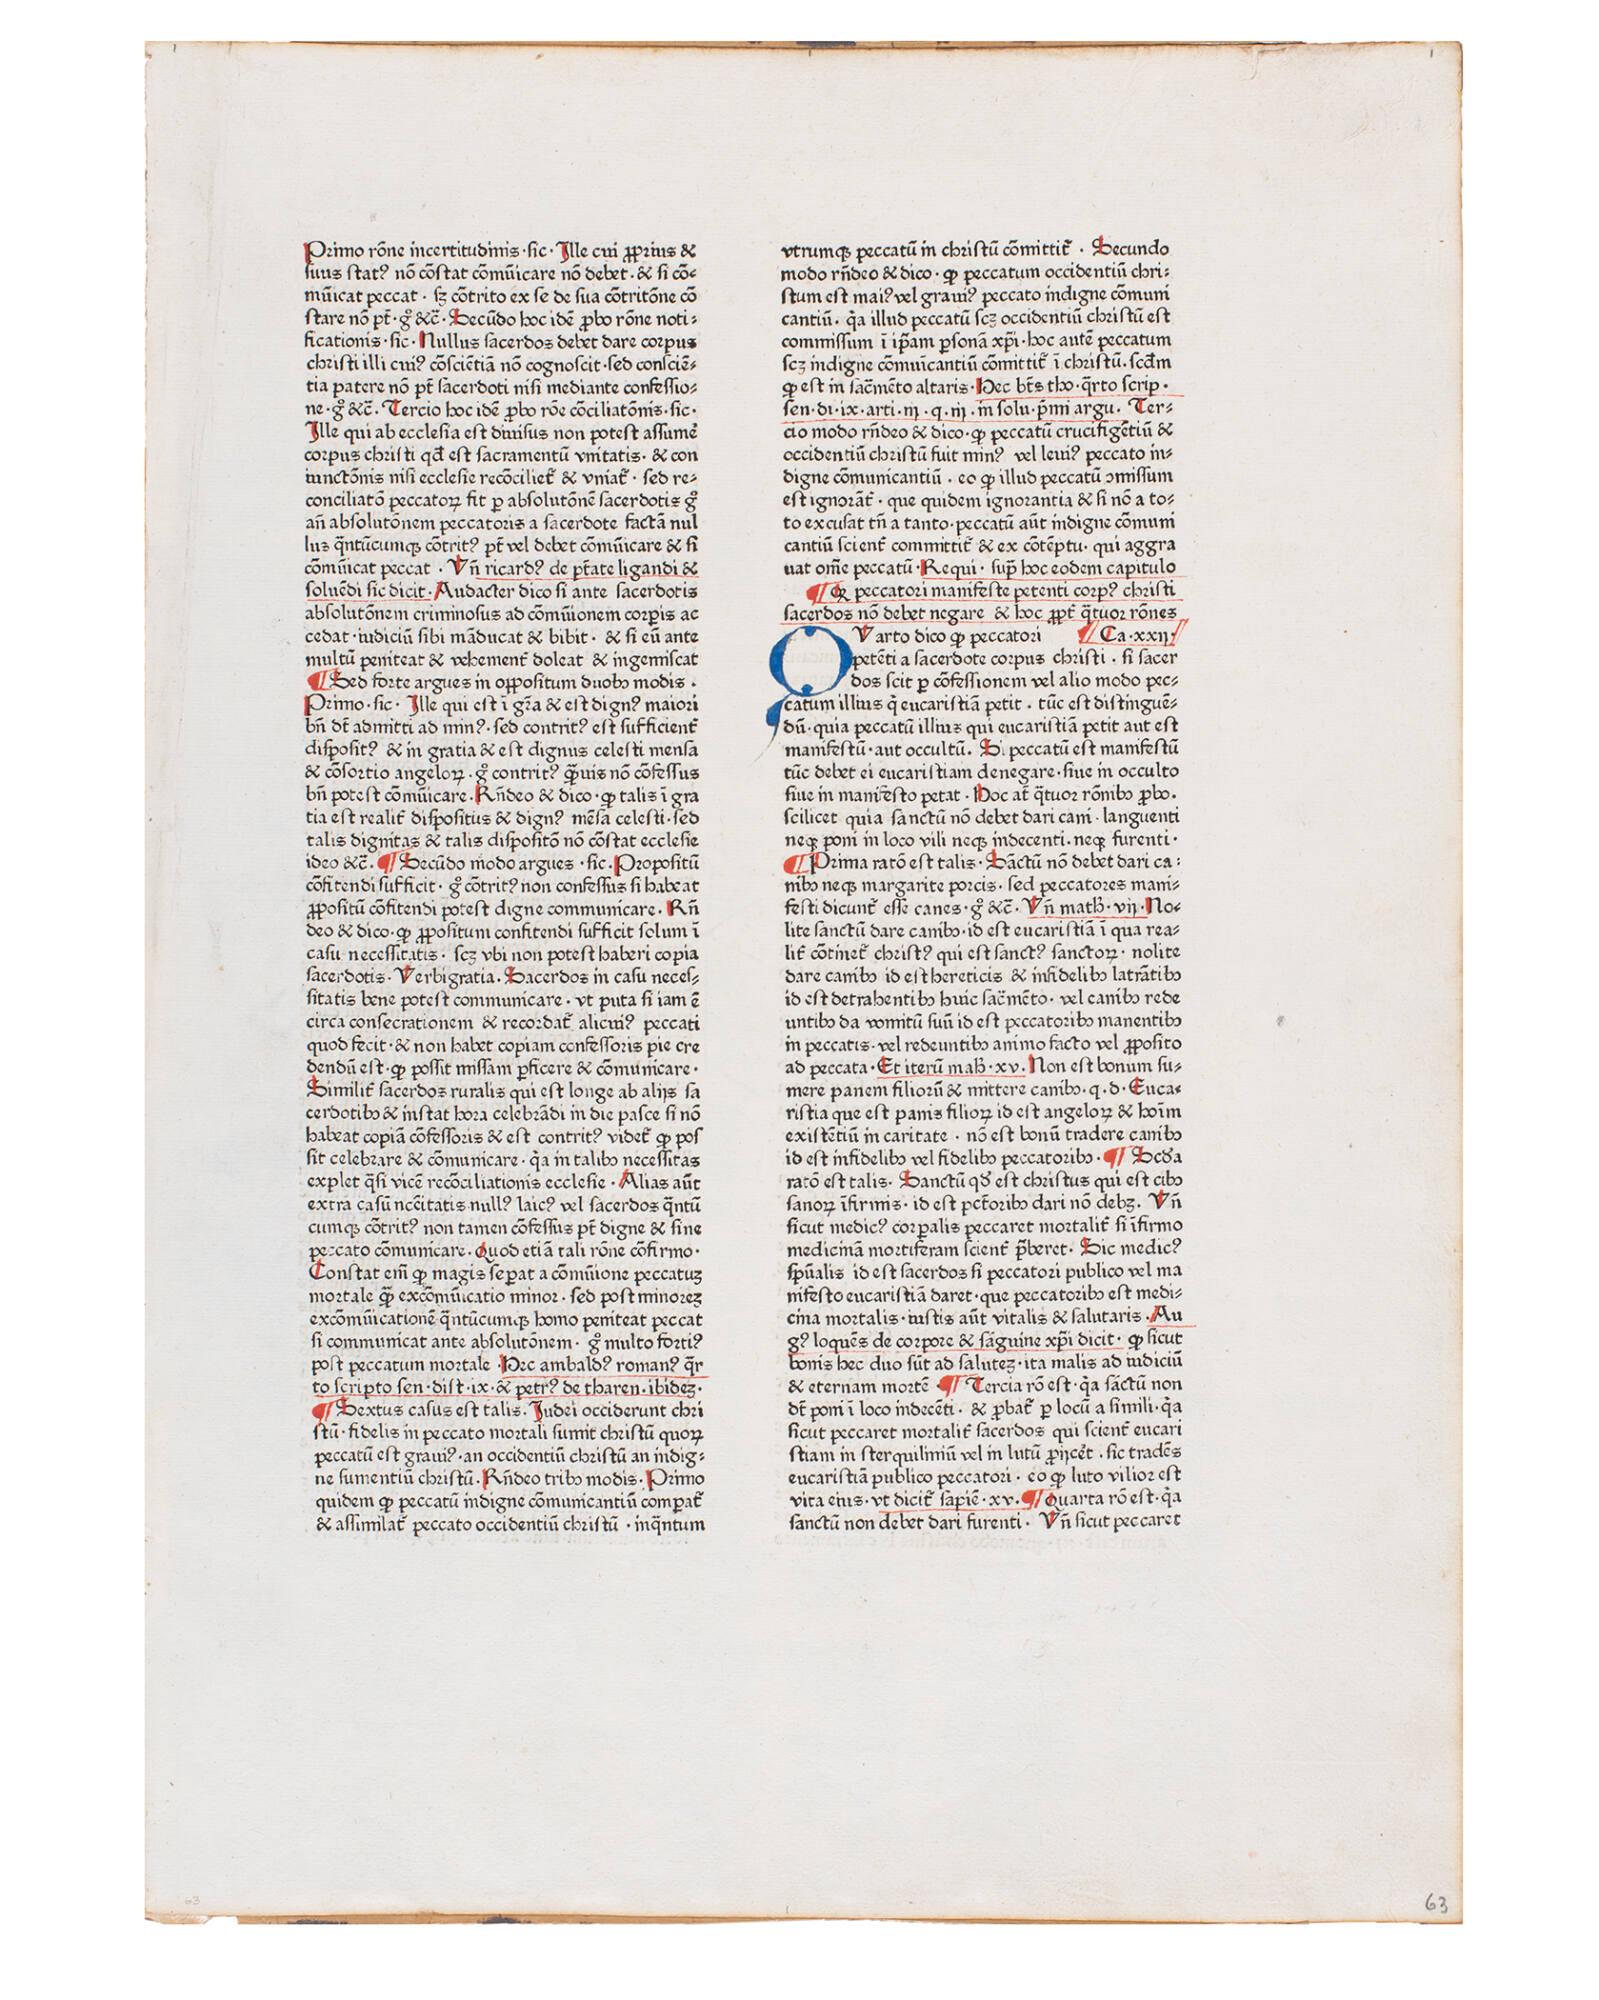 Primo rōne incertitudinis · sic · Ille cui ꝓprius &
suus statꝰ nō cōstat cōmūicare nō debet · & si cō-
mūicat peccat · sꝫ cōtrito ex se de sua cōtritōne cō
stare nō pt̄ · gͦ &c̄ · Secūdo hoc idē ꝓbo rōne noti-
ficationis · sic · Nullus sacerdos debet dare corpus
christi illi cuiꝰ cōsciētiā nō cognoscit · sed consciē-
tia patere nō pt̄ sacerdoti nisi mediante confessio-
ne · gͦ &c̄ · Tercio hoc idē ꝓbo rōe cōciliatōnis · sic ·
Ille qui ab ecclesia est diuisus non potest assumē
corpus christi qđ est sacramentū vnitatis · & con
iunctōnis nisi ecclesie recōcilietr̄ & vniatr̄ · sed re-
conciliatō peccatoꝝ fit ꝑ absolutōnē sacerdotis gͦ
an̄ absolutōnem peccatoris a sacerdote factā nul
lus q̄ntūcumqꝫ cōtritꝰ pt̄ vel debet cōmūicare & si
cōmūicat peccat · Vn̄ ricardꝰ de pt̄ate ligandi &
soluēdi sic dicit · Audacter dico si ante sacerdotis
absolutōnem criminosus ad cōmūionem corpis ac
cedat · iudiciū sibi māducat & bibit · & si eū ante
multū peniteat & vehement̄ doleat & ingemiscat
¶ Sed forte argues in oppositum duobꝫ modis ·
Primo · sic · Ille qui est ī gr̄a & est dignꝰ maiori
bn̄ dt̄ admitti ad minꝰ · sed contritꝰ est sufficient̄
dispositꝰ & in gratia & est dignus celesti mensa
& cōsortio angeloꝝ · gͦ contritꝰ q̄uis nō cōfessus
bn̄ potest cōmūicare · Rn̄deo & dico · ꝙ talis ī gra
tia est realit̄ dispositus & dignꝰ mēsa celesti · sed
talis dignitas & talis dispositō nō cōstat ecclesie
ideo &c̄ · ¶ Secūdo modo argues · sic · Propositū
cōfitendi sufficit · gͦ cōtritꝰ non confessus si habeat
ꝓpositū cōfitendi potest digne communicare · Rn̄
deo & dico · ꝙ ꝓpositum confitendi sufficit solum ī
casu necessitatis · scꝫ vbi non potest haberi copia
sacerdotis · Verbigratia · Sacerdos in casu neces-
sitatis bene potest communicare · vt puta si iam ē
circa consecrationem & recordatr̄ alicuiꝰ peccati
quod fecit · & non habet copiam confessoris pie cre
dendū est · ꝙ possit missam ꝑficere & cōmunicare ·
Similit̄ sacerdos ruralis qui est longe ab alijs sa
cerdotibꝫ & instat hora celebrādi in die pasce si nō
habeat copiā cōfessoris & est contritꝰ videtr̄ ꝙ pos
sit celebrare & cōmunicare · q̄a in talibꝫ necessitas
explet q̄si vicē recōciliationis ecclesie · Alias aūt
extra casū nc̄citatis nullꝰ laicꝰ vel sacerdos q̄ntū
cumqꝫ cōtritꝰ non tamen cōfessus pt̄ digne & sine
peccato cōmunicare · Quod etiā tali rōne cōfirmo ·
Constat em̄ ꝙ magis sepat a cōmūione peccatuꝫ
mortale q̄ excōmūicatio minor · sed post minoreꝫ
excōmūicationē q̄ntūcumqꝫ homo peniteat peccat
si communicat ante absolutōnem · gͦ multo fortiꝰ
post peccatum mortale · Hec ambaldꝰ romanꝰ q̄r
to scripto sen · dist · ix · & petrꝰ de tharen · ibideꝫ ·
¶ Sextus casus est talis · Judei occiderunt chri
stū · fidelis in peccato mortali sumit christū quoꝝ
peccatū est grauiꝰ · an occidentiū christū an indig-
ne sumentiū christū · Rn̄deo tribꝫ modis · Primo
quidem ꝙ peccatū indigne cōmunicantiū compatr̄
& assimilatr̄ peccato occidentiū christū · inq̄ntum
vtrumqꝫ peccatū in christū cōmittitr̄ · Secundo
modo rn̄deo & dico · ꝙ peccatum occidentiū chri-
stum est maiꝰ vel grauiꝰ peccato indigne cōmuni
cantiū · q̄a illud peccatū scꝫ occidentiū christū est
commissum ī ip̄am ꝑsonā xp̄i · hoc autē peccatum
scꝫ indigne cōmunicantiū cōmittitr̄ ī christū · scd̄m
ꝙ est in sac̄mēto altaris · Hec bt̄s tho · q̄rto scrip ·
sen · di · ix · arti · iij · q · iij · in solu · p̄mi argu · Ter-
cio modo rn̄deo & dico · ꝙ peccatū crucifigētiū &
occidentiū christū fuit minꝰ vel leuiꝰ peccato in-
digne cōmunicantiū · eo ꝙ illud peccatū ꝯmissum
est ignorāt̄ · que quidem ignorantia & si nō a to-
to excusat tn̄ a tanto · peccatū aūt indigne cōmuni
cantiū scient̄ committitr̄ & ex cōtēptu · qui aggra
uat om̄e peccatū · Requi · sup̄ hoc eodem capitulo
¶ Q peccatori manifeste petenti corpꝰ christi
sacerdos nō debet negare & hoc ꝓpt̄ q̄tuor rōnes
QVarto dico ꝙ peccatori ¶ Ca · xxij ·
petēti a sacerdote corpus christi · si sacer
dos scit ꝑ cōfessionem vel alio modo pec-
catum illius q̄ eucaristiā petit · tūc est distinguē-
dū · quia peccatū illius qui eucaristiā petit aut est
manifestū · aut occultū · Si peccatū est manifestū
tūc debet ei eucaristiam denegare · siue in occulto
siue in manifesto petat · Hoc at̄ q̄tuor rōnibꝫ ꝓbo ·
scilicet quia sanctū nō debet dari cani · languenti
neqꝫ poni in loco vili neqꝫ indecenti · neqꝫ furenti ·
¶ Prima ratō est talis · Sāctū nō debet dari ca-
nibꝫ neqꝫ margarite porcis · sed peccatores mani-
festi dicuntr̄ esse canes · gͦ &c̄ · Vn̄ math · vij · No-
lite sanctū dare canibꝫ · id est eucaristiā ī qua rea-
lit̄ cōtinetr̄ christꝰ qui est sanctꝰ sanctoꝝ · nolite
dare canibꝫ id est hereticis & infidelibꝫ latrātibꝫ
id est detrahentibꝫ huic sac̄mēto · vel canibꝫ rede
untibꝫ da vomitū suū id est peccatoribꝫ manentibꝫ
in peccatis · vel redeuntibꝫ animo facto vel ꝓposito
ad peccata · Et iterū math · xv · Non est bonum su-
mere panem filiorū & mittere canibꝫ · q · d · Euca-
ristia que est panis filioꝝ id est angeloꝝ & hoīm
existētiū in caritate · nō est bonū tradere canibꝫ
id est infidelibꝫ vel fidelibꝫ peccatoribꝫ · ¶ Scd̄a
ratō est talis · Sanctū qđ est christus qui est cibꝫ
sanoꝝ īfirmis · id est pctōribꝫ dari nō debꝫ · Vn̄
sicut medicꝰ corpalis peccaret mortalit̄ si īfirmo
medicinā mortiferam scient̄ p̄beret · Sic medicꝰ
spūalis id est sacerdos si peccatori publico vel ma
nifesto eucaristiā daret · que peccatoribꝫ est medi-
cina mortalis · iustis aūt vitalis & salutaris · Au
gꝰ loquēs de corpore & sāguine xp̄i dicit · ꝙ sicut
bonis hec duo sūt ad saluteꝫ · ita malis ad iudiciū
& eternam mortē · ¶ Tercia rō est · q̄a sāctū non
dt̄ poni ī loco indecēti · & ꝓbatr̄ ꝑ locū a simili · q̄a
sicut peccaret mortalit̄ sacerdos qui scient̄ eucari
stiam in sterquiliniū vel in lutū ꝓijcēt · sic tradēs
eucaristiā publico peccatori · eo ꝙ luto vilior est
vita eius · vt dicitr̄ sapiē · xv · ¶ Quarta rō est · q̄a
sanctū non debet dari furenti · Vn̄ sicut peccaret
63
63